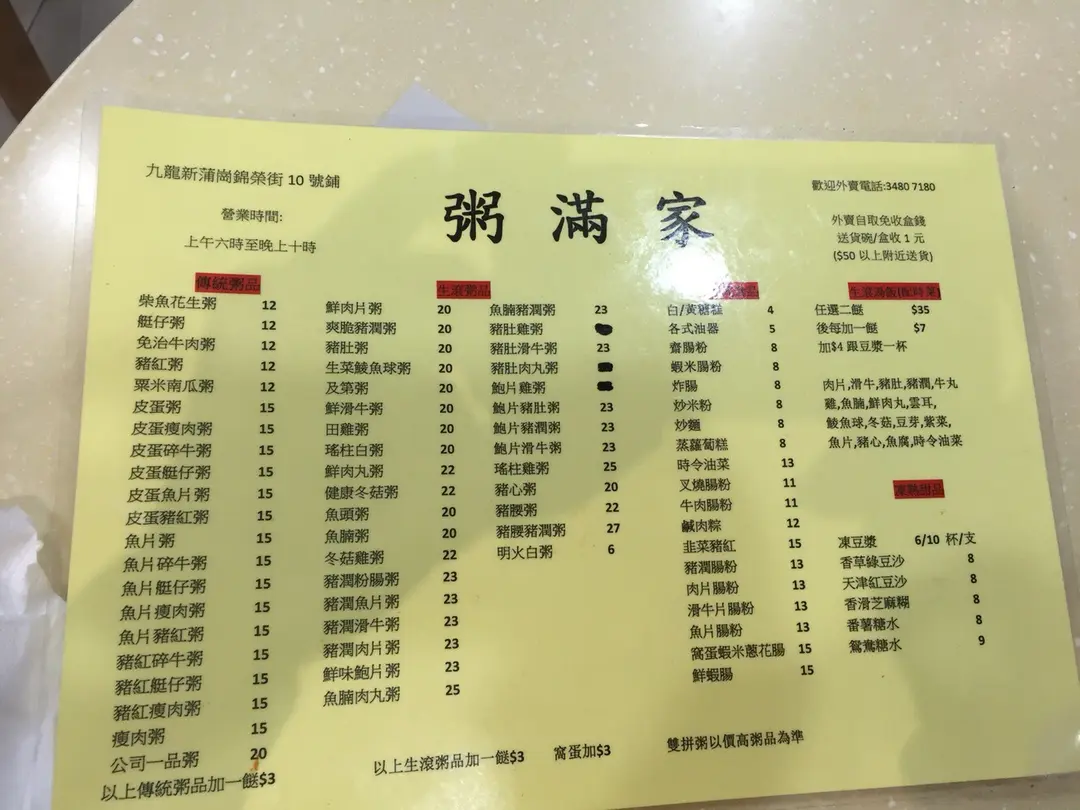 九龍新蒲崗錦榮街 10 號鋪
營業時間:
上午六時至晚上十時
粥滿家
歡迎外賣電話:3480 7180
外賣自取免收盒錢
送貨碗/盒收 1 元
($50 以上附近送貨)
傳統粥品
柴魚花生粥 12
艇仔粥 12
免治牛肉粥 12
豬紅粥 12
粟米南瓜粥 12
皮蛋粥 15
皮蛋瘦肉粥 15
皮蛋碎牛粥 15
皮蛋艇仔粥 15
皮蛋魚片粥 15
皮蛋豬紅粥 15
魚片粥 15
魚片碎牛粥 15
魚片艇仔粥 15
魚片瘦肉粥 15
魚片豬紅粥 15
豬紅碎牛粥 15
豬紅艇仔粥 15
豬紅瘦肉粥 15
瘦肉粥 15
公司一品粥 20
以上傳統粥品加一餸$3
生滾粥品
鮮肉片粥 20
爽脆豬潤粥 20
豬肚粥 20
生菜鯪魚球粥 20
及第粥 20
鮮滑牛粥 20
田雞粥 20
瑤柱白粥 20
鮮肉丸粥 22
健康冬菇粥 22
魚頭粥 20
魚腩粥 20
冬菇雞粥 22
豬潤粉腸粥 23
豬潤魚片粥 23
豬潤滑牛粥 23
豬潤肉片粥 23
鮮味鮑片粥 23
魚腩肉丸粥 25
魚腩豬潤粥 23
豬肚雞粥
豬肚滑牛粥 23
豬肚肉丸粥
鮑片雞粥
鮑片豬肚粥 23
鮑片豬潤粥 23
鮑片滑牛粥 23
瑤柱雞粥 25
豬心粥 20
豬腰粥 22
豬腰豬潤粥 27
明火白粥 6
以上生滾粥品加一餸$3
窩蛋加$3
白/黃糖糕 4
各式油器 5
齋腸粉 8
蝦米腸粉 8
炸腸 8
炒米粉 8
炒麵 8
蒸蘿蔔糕 8
時令油菜 13
叉燒腸粉 11
牛肉腸粉 11
鹹肉粽 12
韭菜豬紅 15
豬潤腸粉 13
肉片腸粉 13
滑牛片腸粉 13
魚片腸粉 13
窩蛋蝦米蔥花腸 15
鮮蝦腸 15
雙拼粥以價高粥品為準
生滾湯飯(配時菜)
任選二餸 $35
後每加一餸 $7
加$4 跟豆漿一杯
肉片,滑牛,豬肚,豬潤,牛丸
雞,魚腩,鮮肉丸,雲耳,
鯪魚球,冬菇,豆芽,紫菜,
魚片,豬心,魚腐,時令油菜
凍熱甜品
凍豆漿 6/10 杯/支
香草綠豆沙 8
天津紅豆沙 8
香滑芝麻糊 8
番薯糖水 8
鴛鴦糖水 9